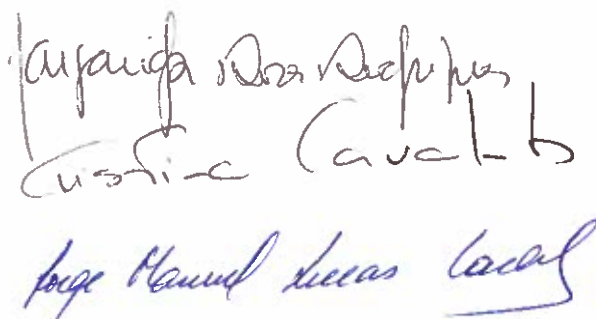 Margarida Rosa Rodrigues
Cristina Carvalho
Jorge Manuel Lucas